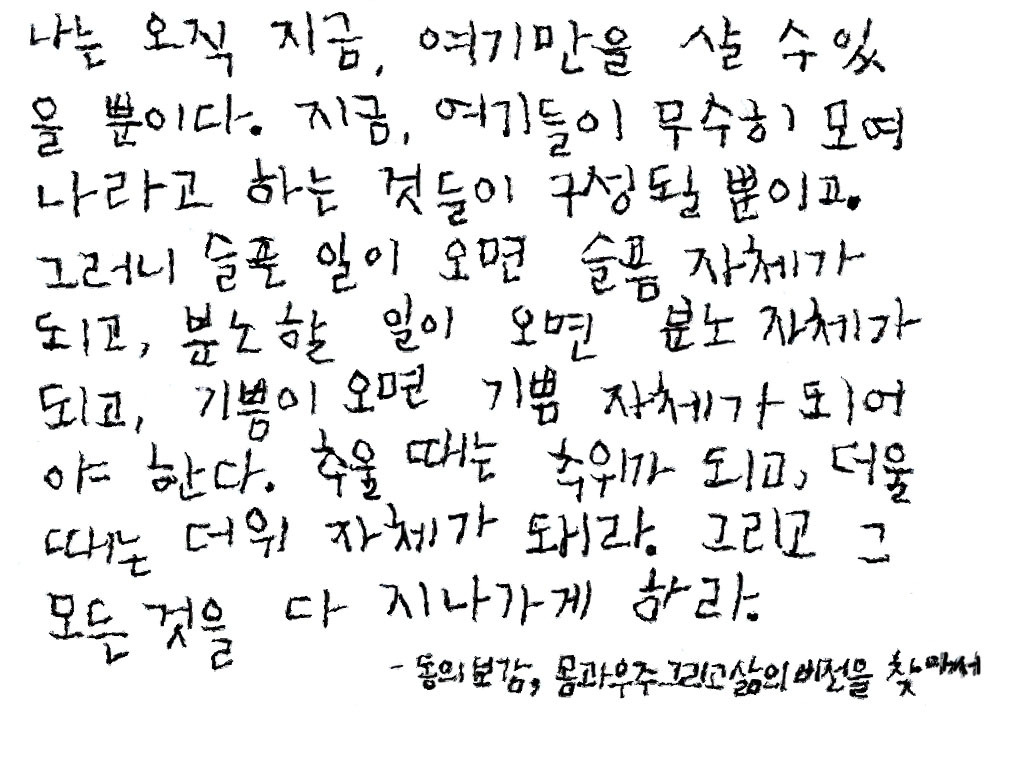 나는 오직 지금, 여기만을 살 수 있
을 뿐이다. 지금, 여기들이 무수히 모여
나라고 하는 것들이 구성될 뿐이고.
그러니 슬픈 일이 오면 슬픔 자체가
되고, 분노할 일이 오면 분노 자체가
되고, 기쁨이 오면 기쁨 자체가 되어
야 한다. 추울 때는 추위가 되고, 더울
때는 더위 자체가 돼라. 그리고 그
모든 것을 다 지나가게 하라.
- 동의보감, 몸과 우주 그리고 삶의 비전을 찾아서